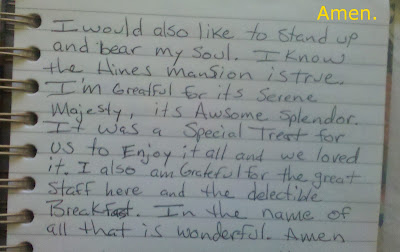 Amen.
I would also like to stand up
and bear my soul. I know
the Hines mansion is true.
I'm Greatful for its Serene
Majesty, its Awsome Splendor.
It was a Special Treat for
us to Enjoy it all and we loved
it. I also am Grateful for the great
Staff here and the delectible
Breakfast. In the name of
all that is wonderful. Amen